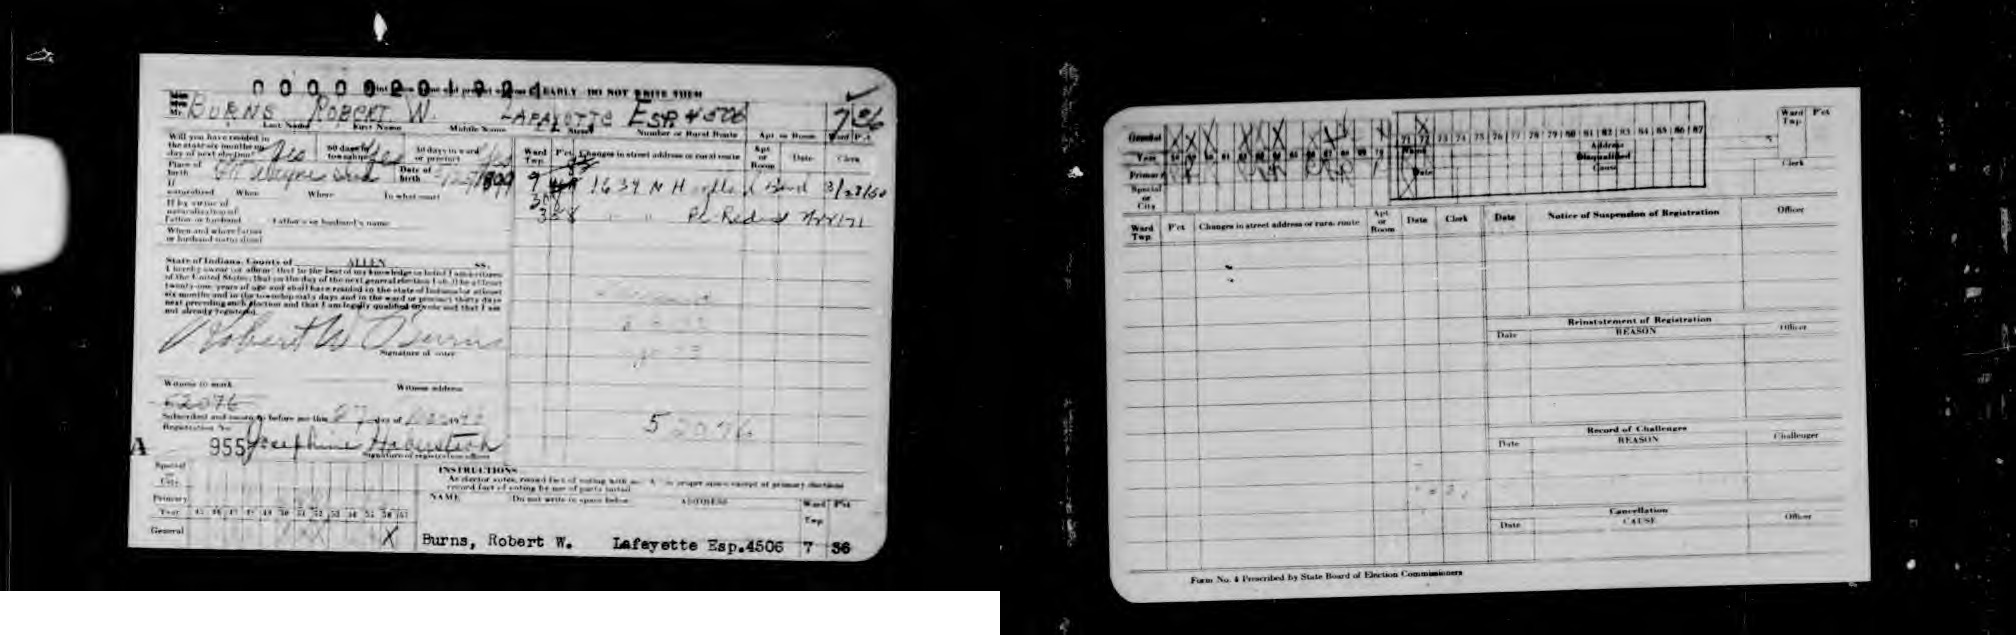 0000020192
CLEARLY DO NOT WRITE THEM
BURNS ROBERT W. LAFAYETTE ESP 4506 7 36
Mr. Last Name First Name Middle Name Street Number or Rural Route Apt. or Room Ward P'ct
Will you have resided in the state six months on day of next election? Yes 60 days in township Yes 30 days in ward or precinct Yes
Place of birth Ft Wayne Ind Date of birth
If naturalized When Where In what court
If by virtue of naturalization of Father or husband Father's or husband's name
When and where father or husband naturalized
State of Indiana, County of ALLEN SS.
I hereby swear (or affirm) that to the best of my knowledge or belief I am a citizen
of the United States; that on the day of the next general election I shall be at least
twenty-one years of age and shall have resided in the state of Indiana for at least
six months and in the township sixty days and in the ward or precinct thirty days
next preceding such election and that I am legally qualified to vote and that I am
not already registered.
Robert W Burns
Signature of voter
Witness to mark Witness address
52076
Subscribed and sworn to before me this 27 day of
Registration No.
A 955 Josephine
Signature of registration officer
Ward Twp. P'ct Changes in street address or rural route Apt. or Room Date Clerk
9 1634 N Blvd 3/28/60
" " 71
52076
Special or City
Primary
Year 45 46 47 48 49 50 51 52 53 54 55 56 57
General X
INSTRUCTIONS
As elector votes, record fact of voting with an X in proper space except at primary elections
record fact of voting by use of party initial
NAME Do not write in space below ADDRESS Ward Twp. P'ct
Burns, Robert W. Lafayette Esp.4506 7 36
General
Year
Primary
Special or City
71 72 73 74 75 76 77 78 79 80 81 82 83 84 85 86 87
Address
Disqualified
Cause
Date
Ward Twp. P'ct
Clerk
Ward Twp. P'ct Changes in street address or rural route Apt. or Room Date Clerk
Date Notice of Suspension of Registration Officer
Reinstatement of Registration
Date REASON Officer
Record of Challenges
Date REASON Challenger
Cancellation
Date CAUSE Officer
Form No. 4 Prescribed by State Board of Election Commissioners